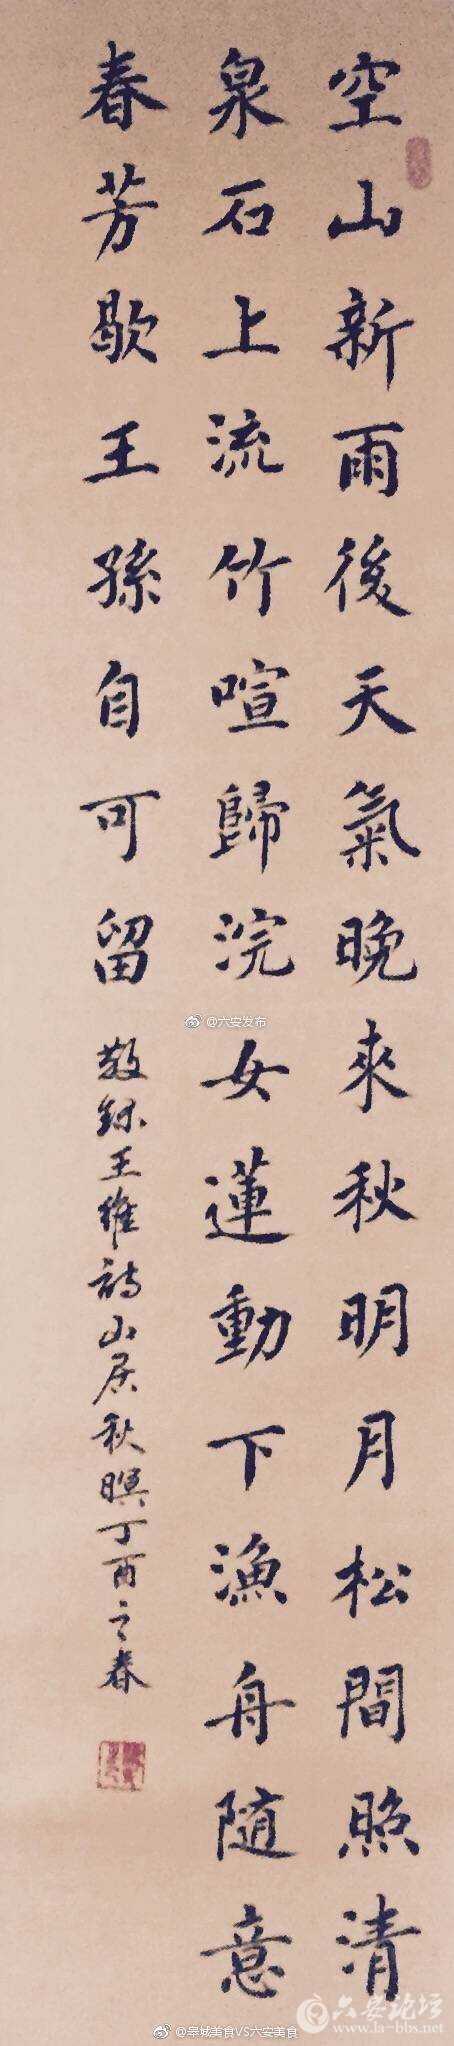 空山新雨後天氣晚來秋明月松間照清
泉石上流竹喧歸浣女蓮動下漁舟隨意
春芳歇王孫自可留
敬録王維詩山居秋暝丁酉之春
@六安发布
@皋城美食VS六安美食
六安论坛
www.la-bbs.net